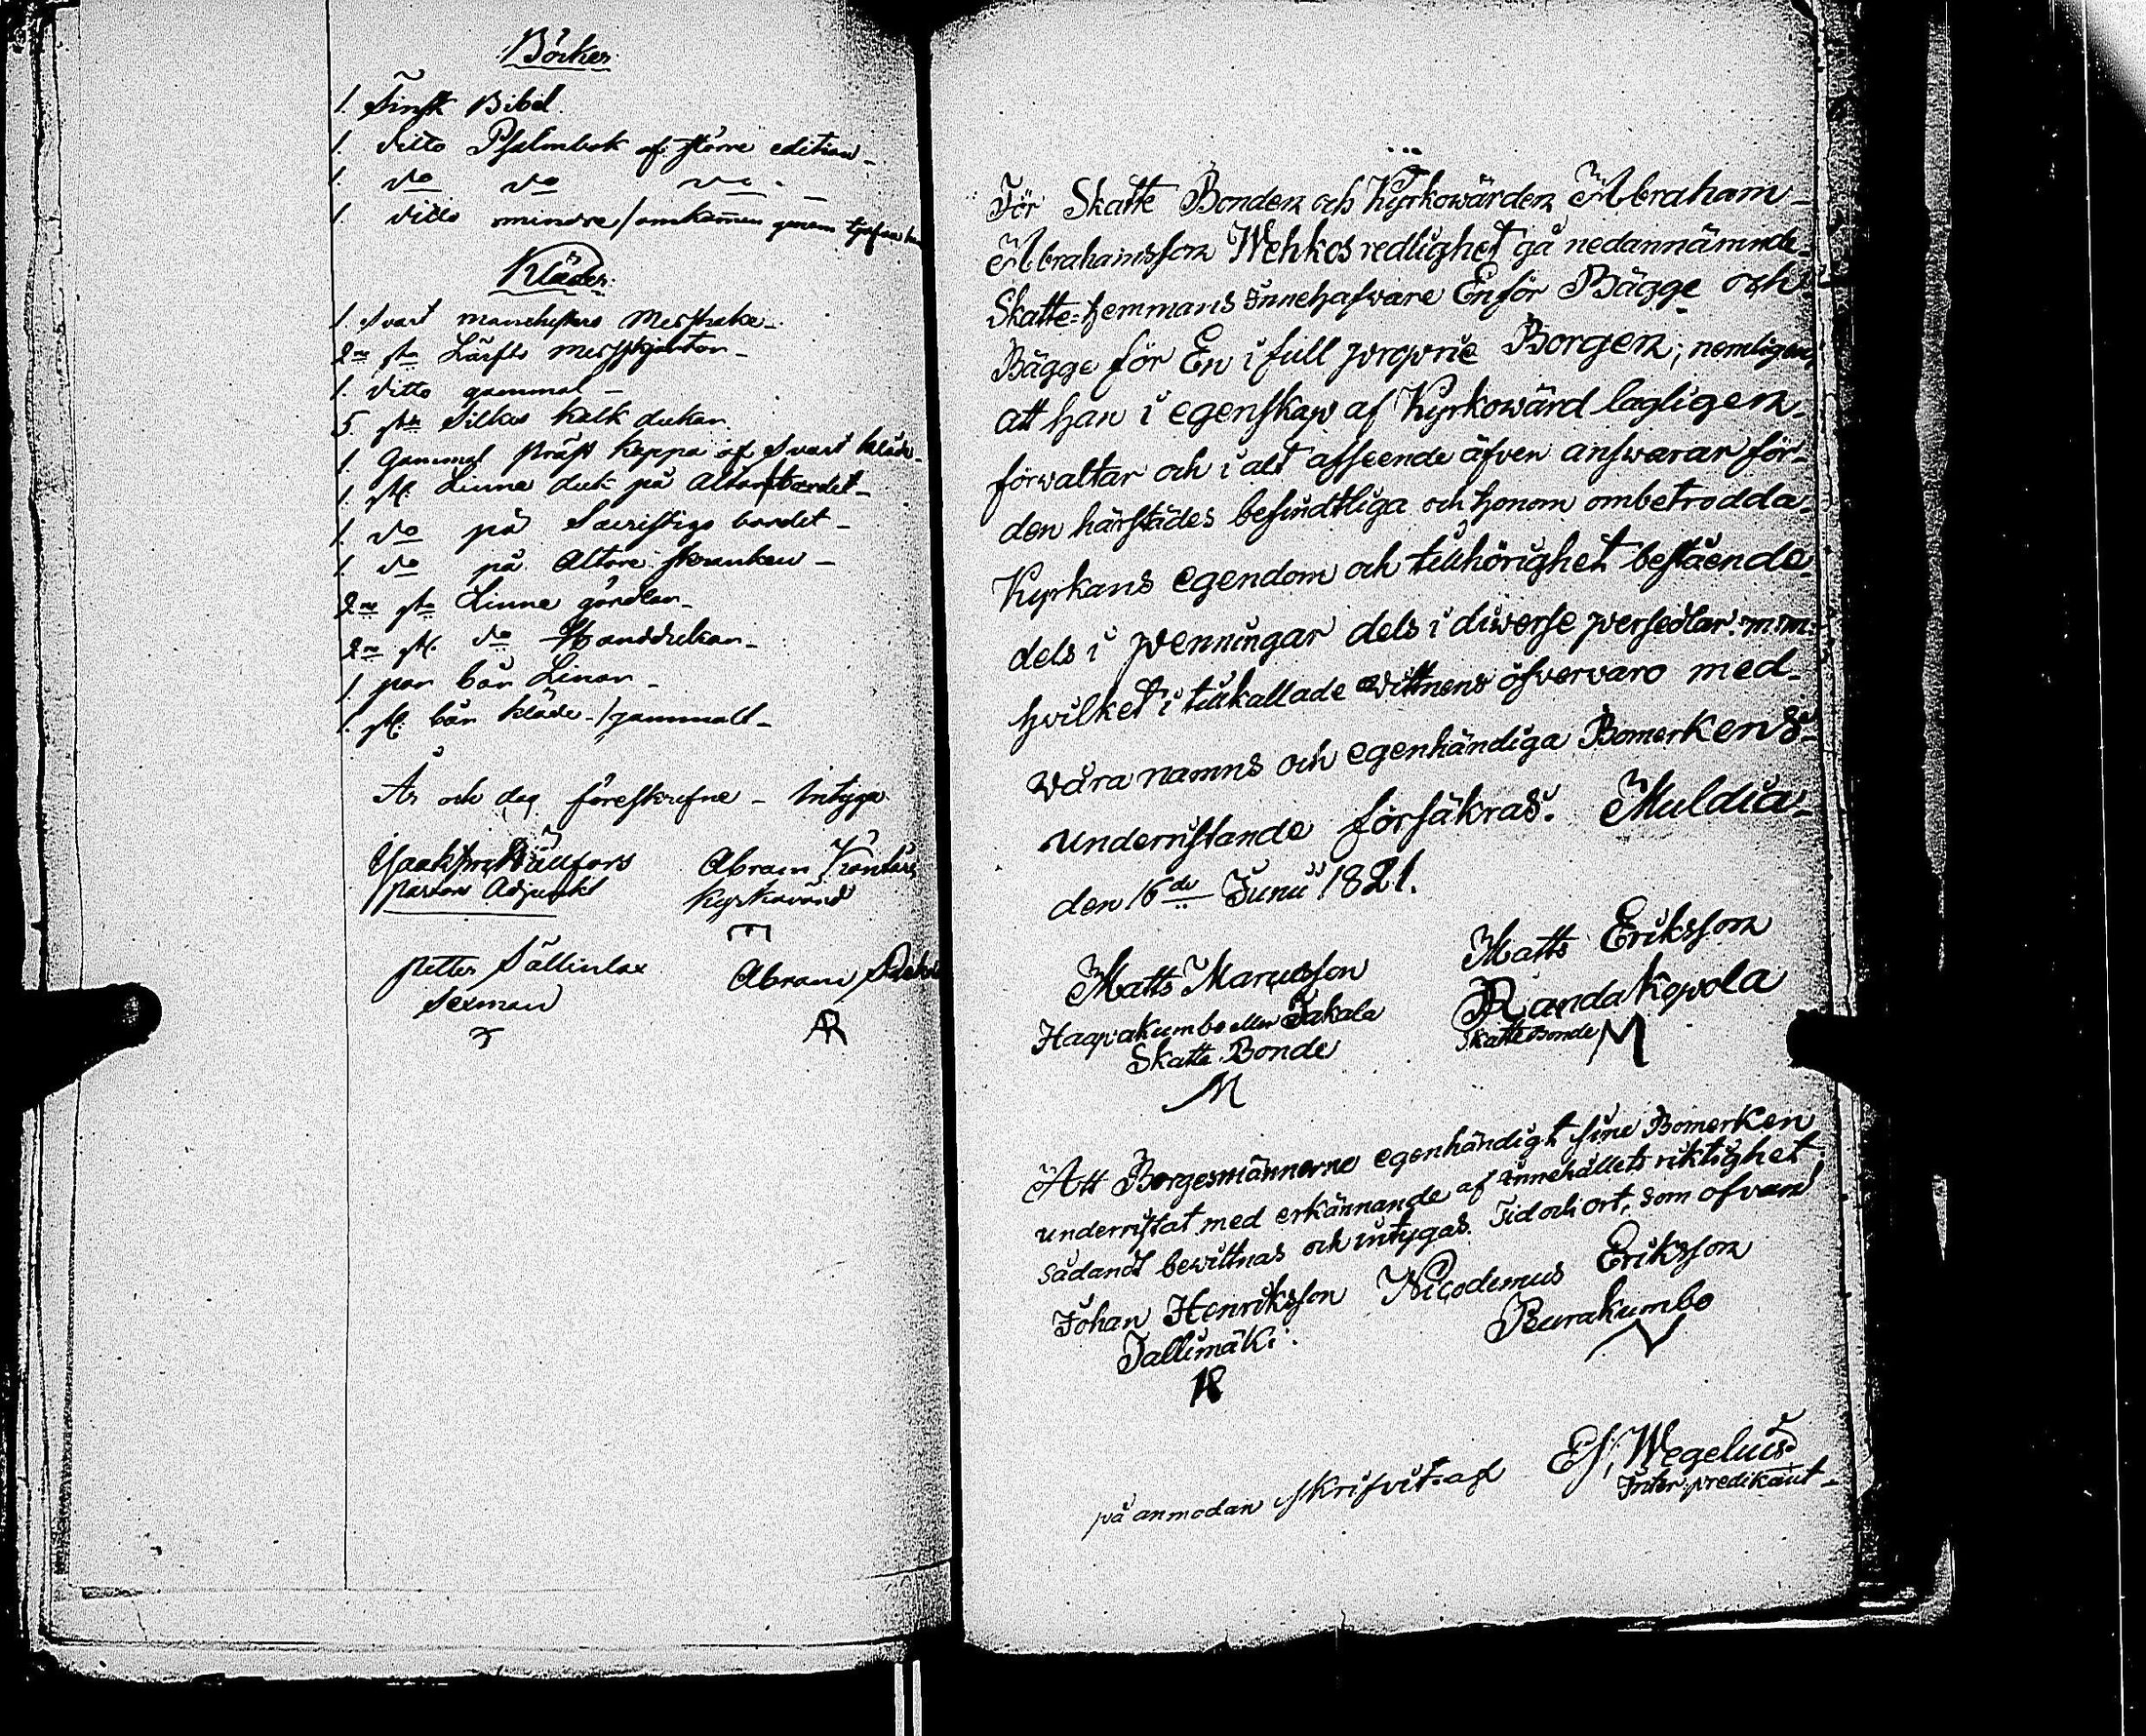 Böcker
1. Finsk Bibel.
1. ditto Psalmbok af större edition
1. do do do
1. ditto mindre / omkommen genom
Kläder
1. Svart manchesters Messhake
2ne st. Lärfts messskjortor
1. ditto gammal
5. st. Silkes kalk dukar
1. Gammal Präst kappa af Svart kläde
1. st. Linne duk på Altarebordet
1. do på Sacristige bordet
1. do på Altare skranken
2ne st. Linne gördlar
2ne st. do Handdukar
1. par bår Linor
1. st. bår kläde / gammalt
År och dag föreskrefne intyga
Wallfors Abram
Pastors Adjunkt Kyrkovärd
Petter Sällinlax Abram
Sexman
AR
För Skatte Bonden och Kyrkowärden Abraham
Abrahamsson Wehkos redlighet gå nedannämnde
Skatte-hemmans Innehafware En för Bägge och
Bägge för En i full proprie Borgen; nemligen,
att han i egenskap af Kyrkowärd lagligen
förvaltar och i alt afseende äfven answarar för
den härstädes befindtliga och honom ombetrodda
Kyrkans egendom och tillhörighet bestående
dels i penningar dels i diwerse persedlar. m.m.
hvilket i tillkallade wittnens öfvervaro med
våra namns och egenhändiga Bomerkens
underristande försäkras. Muldia
den 16de Junii 1821.
Matts Matts Eriksson
Haapakumbo eller Takala Randakopola
Skatte Bonde Skatte Bonde
M M
Att Borgesmännerne egenhändigt sine Bomerken
underristat med erkännande af innehållets riktighet;
sådant bewittnas och intygas. Tid och ort, som ofvan
Johan Henriksson Nicodemus Eriksson
Tallimäki. Rurakumbo
på anmodan skrifvit af Es. Wegelius
Inter. predikant